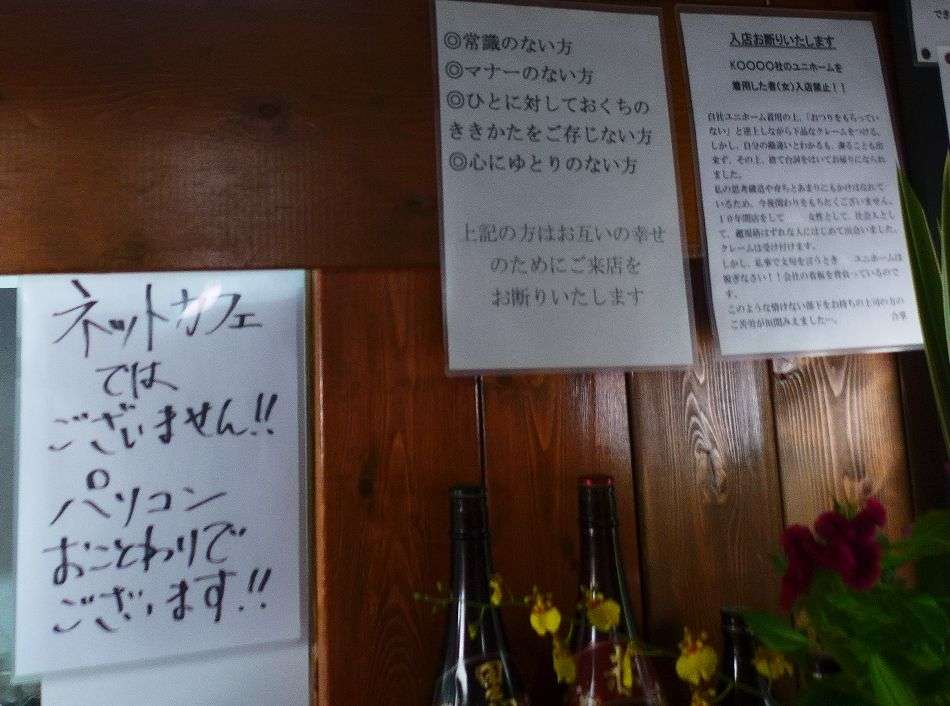 ネットカフェ
では
ございません!!
パソコン
おことわりで
ございます!!
◎常識のない方
◎マナーのない方
◎ひとに対しておくちの
ききかたをご存じない方
◎心にゆとりのない方
上記の方はお互いの幸せ
のためにご来店を
お断りいたします
入店お断りいたします
KOOOO社のユニホームを
着用した者(女)入店禁止!!
自社ユニホーム着用の上、「おつりをもらってい
ない」と逆上しながら下品なクレームをつける。
しかし、自分の勘違いとわかるも、謝ることも出
来ず、その上、捨て台詞をはいてお帰りになられ
ました。
私の思考構造や育ちとあまりにもかけはなれて
いるため、今後関わりをもちたくございません。
10年間店をして 女性として、社会人とし
て、超規格はずれな人にはじめて出会いました。
クレームは受け付けます。
しかし、私事で文句を言うとき ユニホームは
脱ぎなさい!!会社の看板を背負っているので
す。
このような情けない部下をお持ちの上司の方の
ご苦労が垣間みえました〜。
でき